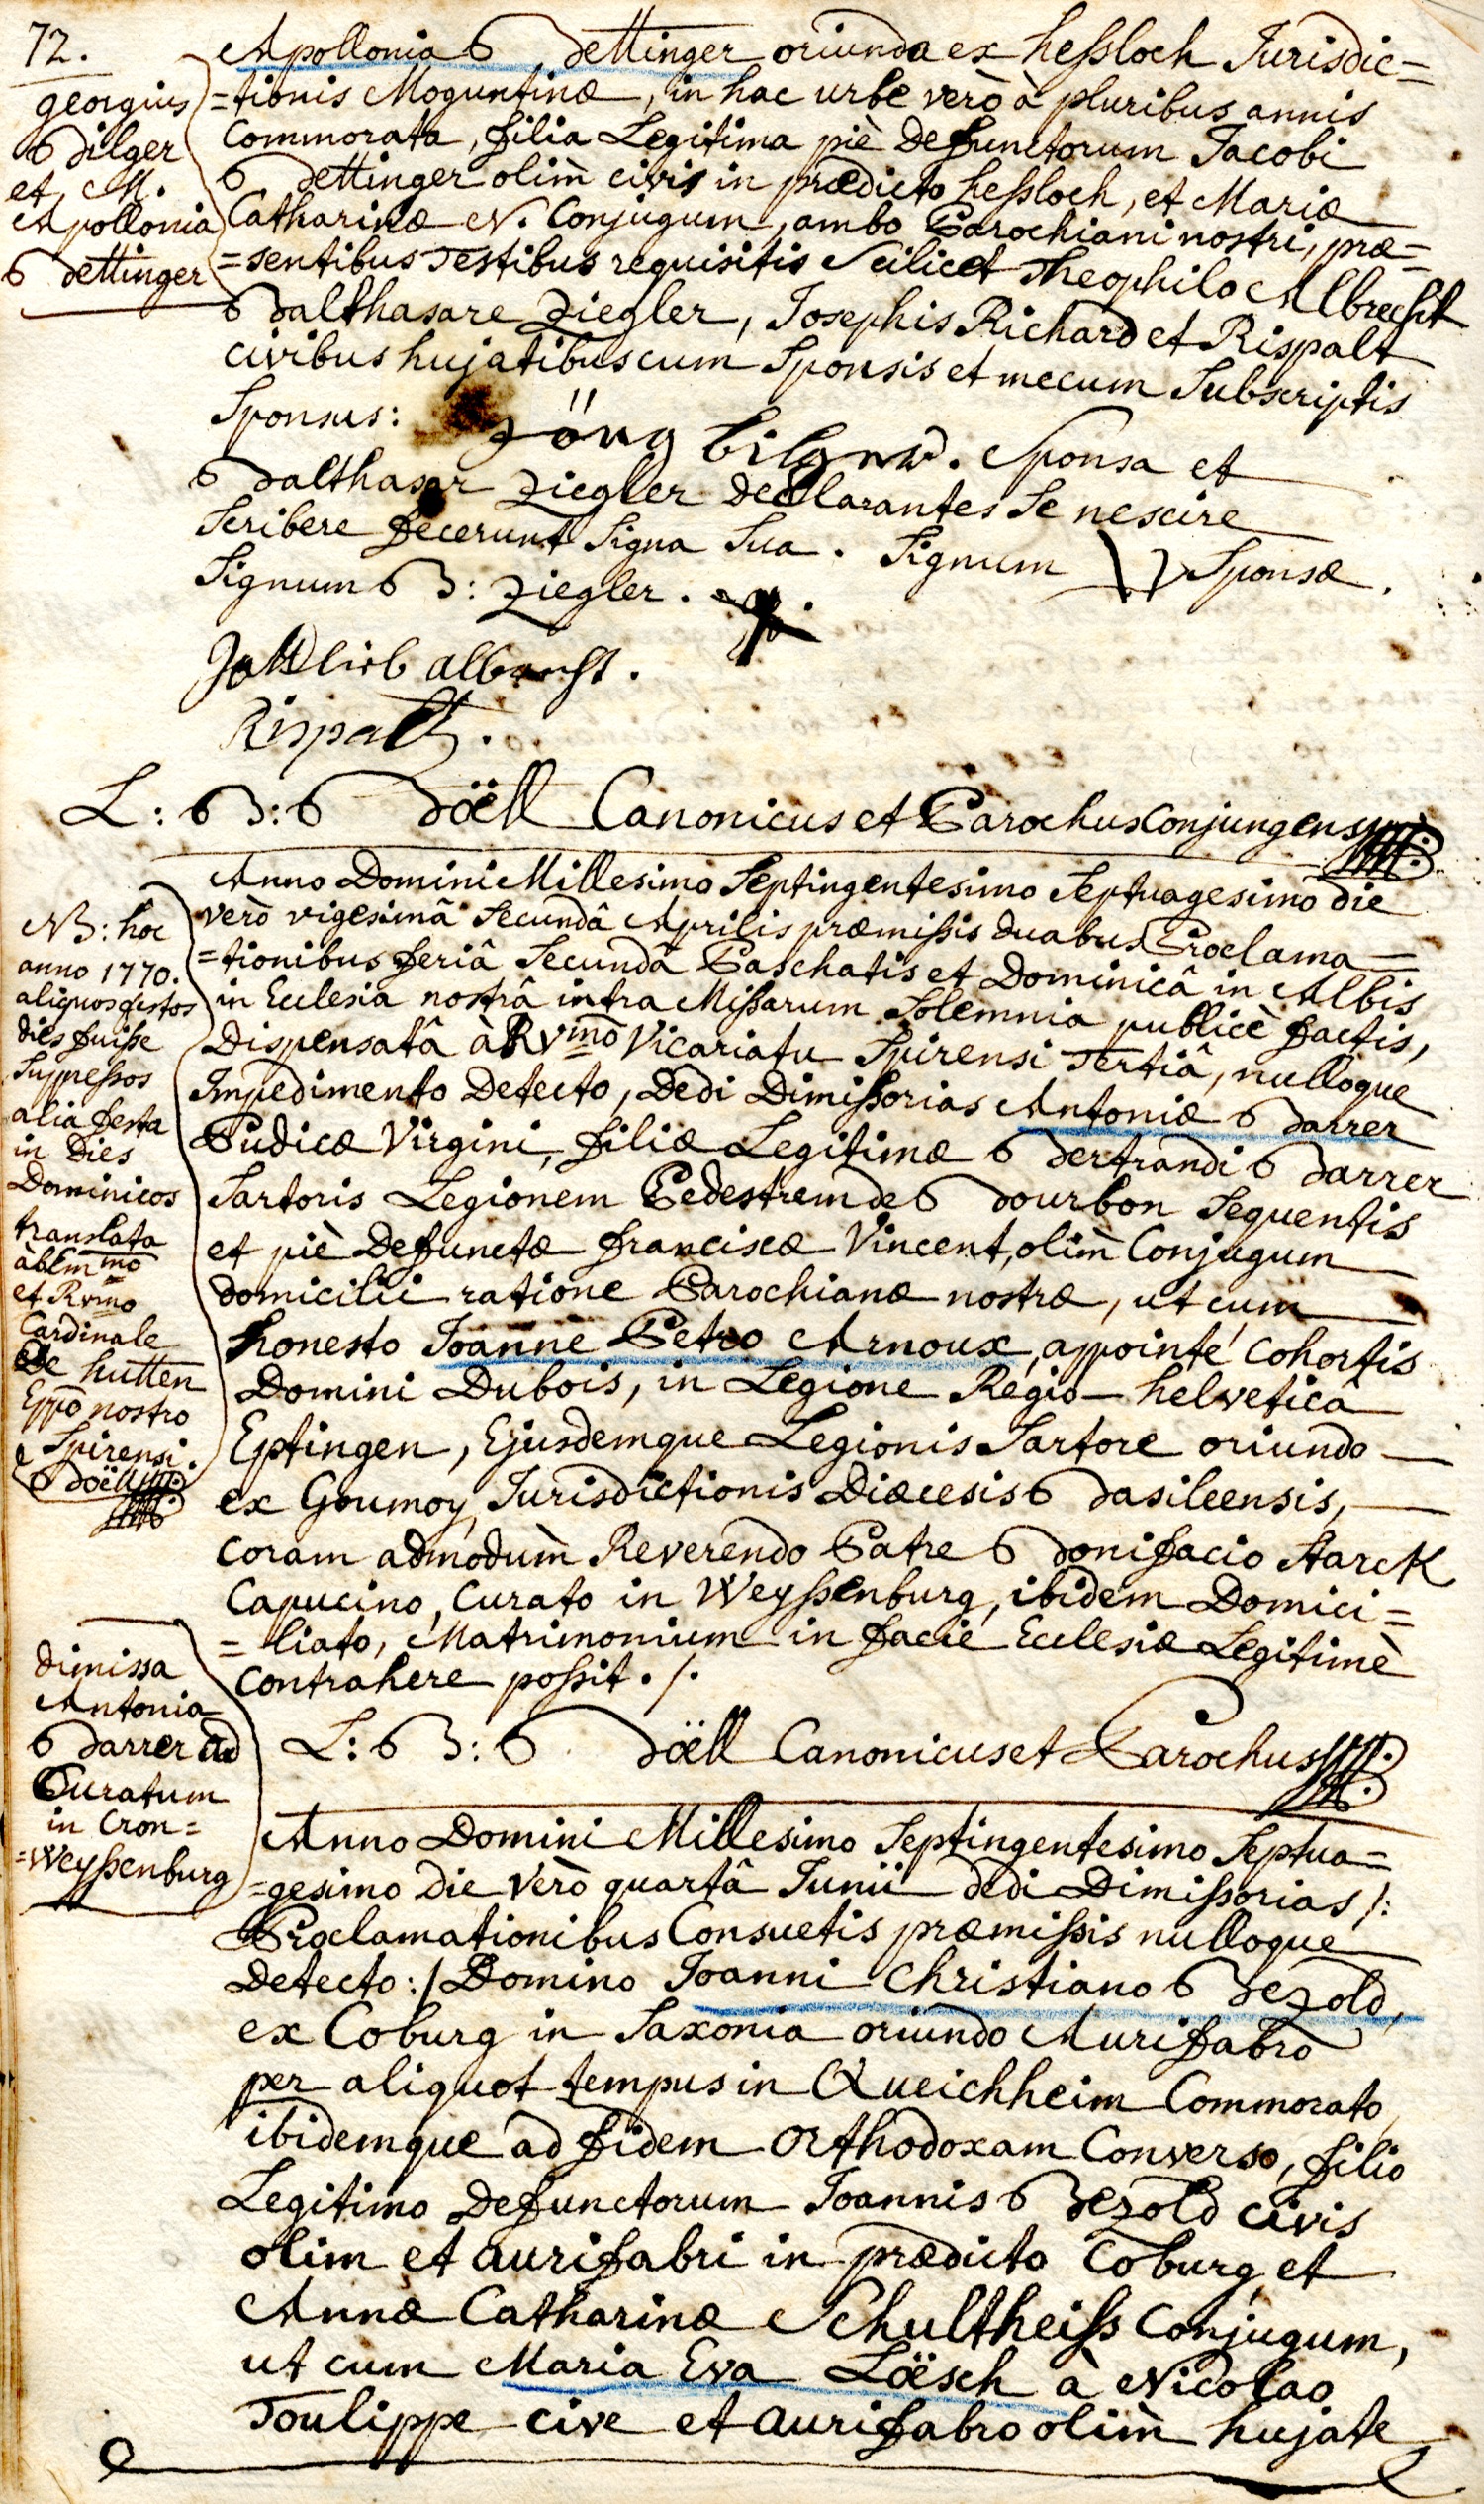 72.
Georgius
Bilger
et M.
Apollonia
Bettinger
Apollonia Bettinger oriunda ex heßloch Jurisdic=
=tionis Moguntinæ, in hac urbe verò à pluribus annis
Commorata, filia Legitima piè Defunctorum Jacobi
Bettinger olim̀ civis in prædicto heßloch, et Mariæ
Catharinæ N. Conjugum, ambo Parochiani nostri, præ=
=sentibus Testibus requisitis Scilicet Theophilo Albrecht
Balthasare Ziegler, Josephis Richard et Rispalt
civibus hujatibus cum Sponsis et mecum Subscriptis
Sponsus: Jörg bilger. Sponsa et
Balthasar Ziegler Declarantes Se nescire
Scribere fecerunt Signa Sua. Signum Sponsæ.
Signum B: Ziegler.
Gottlieb albrecht.
Rispalt.
L: B: Böell Canonicus et Parochus Conjungens
NB: hoc
anno 1770.
aliquos festos
dies fuisse
Suppressos
alia festa
in Dies
Dominicos
translata
ab Em̅mo
et Rvmo
Cardinale
De hutten
Eppõ nostro
Spirensi.
Böell
Anno Domini Millesimo Septingentesimo Septuagesimo die
verò vigesimâ Secundâ Aprilis præmißis duabus Proclama=
=tionibus feriâ Secundâ Paschatis et Dominicâ in Albis
in Ecclesia nostrâ intra Mißarum Solemnia publicè factis,
Dispensatâ à Rvmõ Vicariatu Spirensi Tertiâ, nulloque
Impedimento Detecto, Dedi Dimißorias Antoniæ Barrer
Pudicæ Virgini, filiæ Legitimæ Bertrandi Barrer
Sartoris Legionem Pedestrem de Bourbon Sequentis
et piè Defunctæ franciscæ Vincent, olim̀ Conjugum
domicilii ratione Parochianæ nostræ, ut cum
honesto Joanne Petro Arnoux, appointé Cohortis
Domini Dubois, in Legione Regio-helveticâ
Eptingen, Ejusdemque Legionis Sartore oriundo
ex Goumoy, Jurisdictionis Diœcesis Basileensis,
coram admodum̀ Reverendo Patre Bonifacio Starck
Capucino, Curato in Weyßenburg, ibidem Domici=
=liato, Matrimonium in facie Ecclesiæ Legitimè
contrahere poßit./.
dimissa
Antonia
Barrer ad
Curatum
in Cron=
=weyßenburg
L: B: Böell Canonicus et Parochus
Anno Domini Millesimo Septingentesimo Septua=
=gesimo die verò quartâ Junii dedi Dimißorias /:
Proclamationibus Consuetis præmißis nulloque
Detecto:/ Domino Joanni Christiano Bezold,
ex Coburg in Saxonia oriundo Aurifabro
per aliquot tempus in Queichheim Commorato
ibidemque ad fidem Orthodoxam Converso, filio
Legitimo Defunctorum Joannis Bezold civis
olim et aurifabri in prædicto Coburg, et
Annæ Catharinæ Schultheiß Conjugum,
ut cum Maria Eva Löesch à Nicolao
Toulippe cive et aurifabro olim̀ hujate